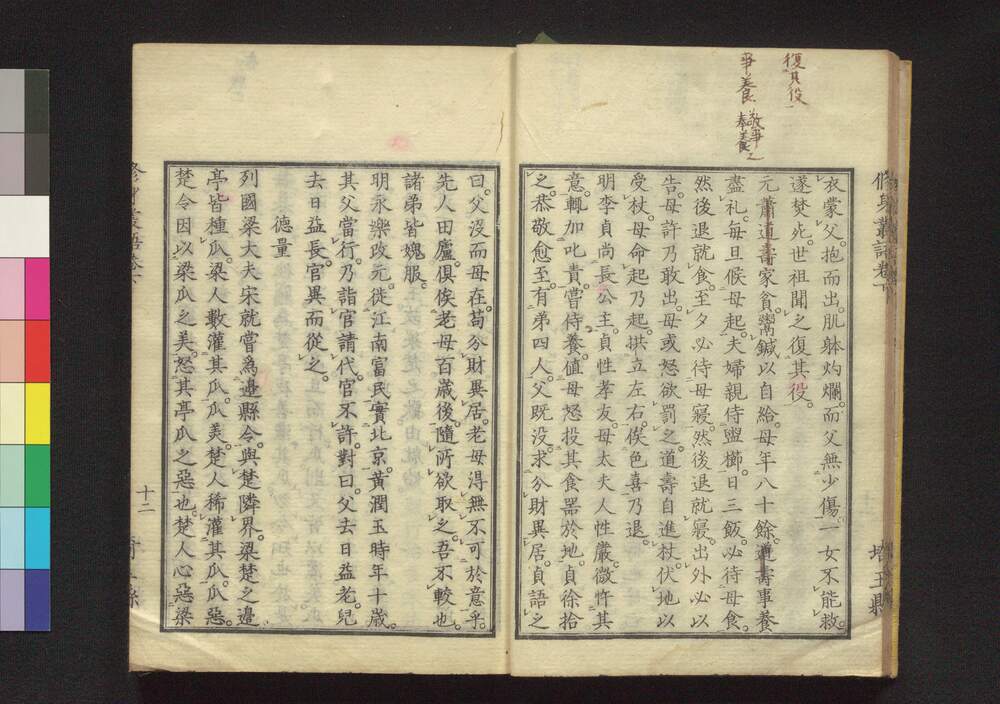 復其役
事養 敬事之
奉養
衣蒙父。抱而出。肌躰灼爛。而父無少傷。一女不能救。
遂焚死。世祖聞之。復其役。
元蕭道壽家貧。鬻鍼以自給。母年八十餘。道壽事養
盡礼。每旦候母起。夫婦親侍盥櫛。日三飯。必待母食。
然後退就食。至夕必待母寢。然後退就寢。出外必以
告。母許乃敢出。母或怒欲罰之。道壽自進杖。伏地以
受杖。母命起乃起。拱立左右。俟色喜乃退。
明李貞尚長公主。貞性孝友。母太夫人性嚴。微忤其
意。輒加叱責。嘗侍養。值母怒投其食器於地。貞徐拾
之。恭敬愈至。有弟四人。父既没。求分財異居。貞語之
曰。父没而母在。苟分財異居。老母得無不可於意乎。
先人田廬。俱俟老母百歲後。隨所欲取之。吾不較也。
諸弟皆媿服。
明永樂改元。徙江南富民實北京。黃潤玉時年十歲。
其父當行。乃詣官請代。官不許。對曰。父去日益老。兒
去日益長。官異而從之。
德量
列國梁大夫宋就嘗爲邊縣令。與楚隣界。梁楚之邊
亭皆種瓜。梁人數灌其瓜。瓜美。楚人稀灌其瓜。瓜惡。
楚令因以梁瓜之美。怒其亭瓜之惡也。楚人心惡梁
十二